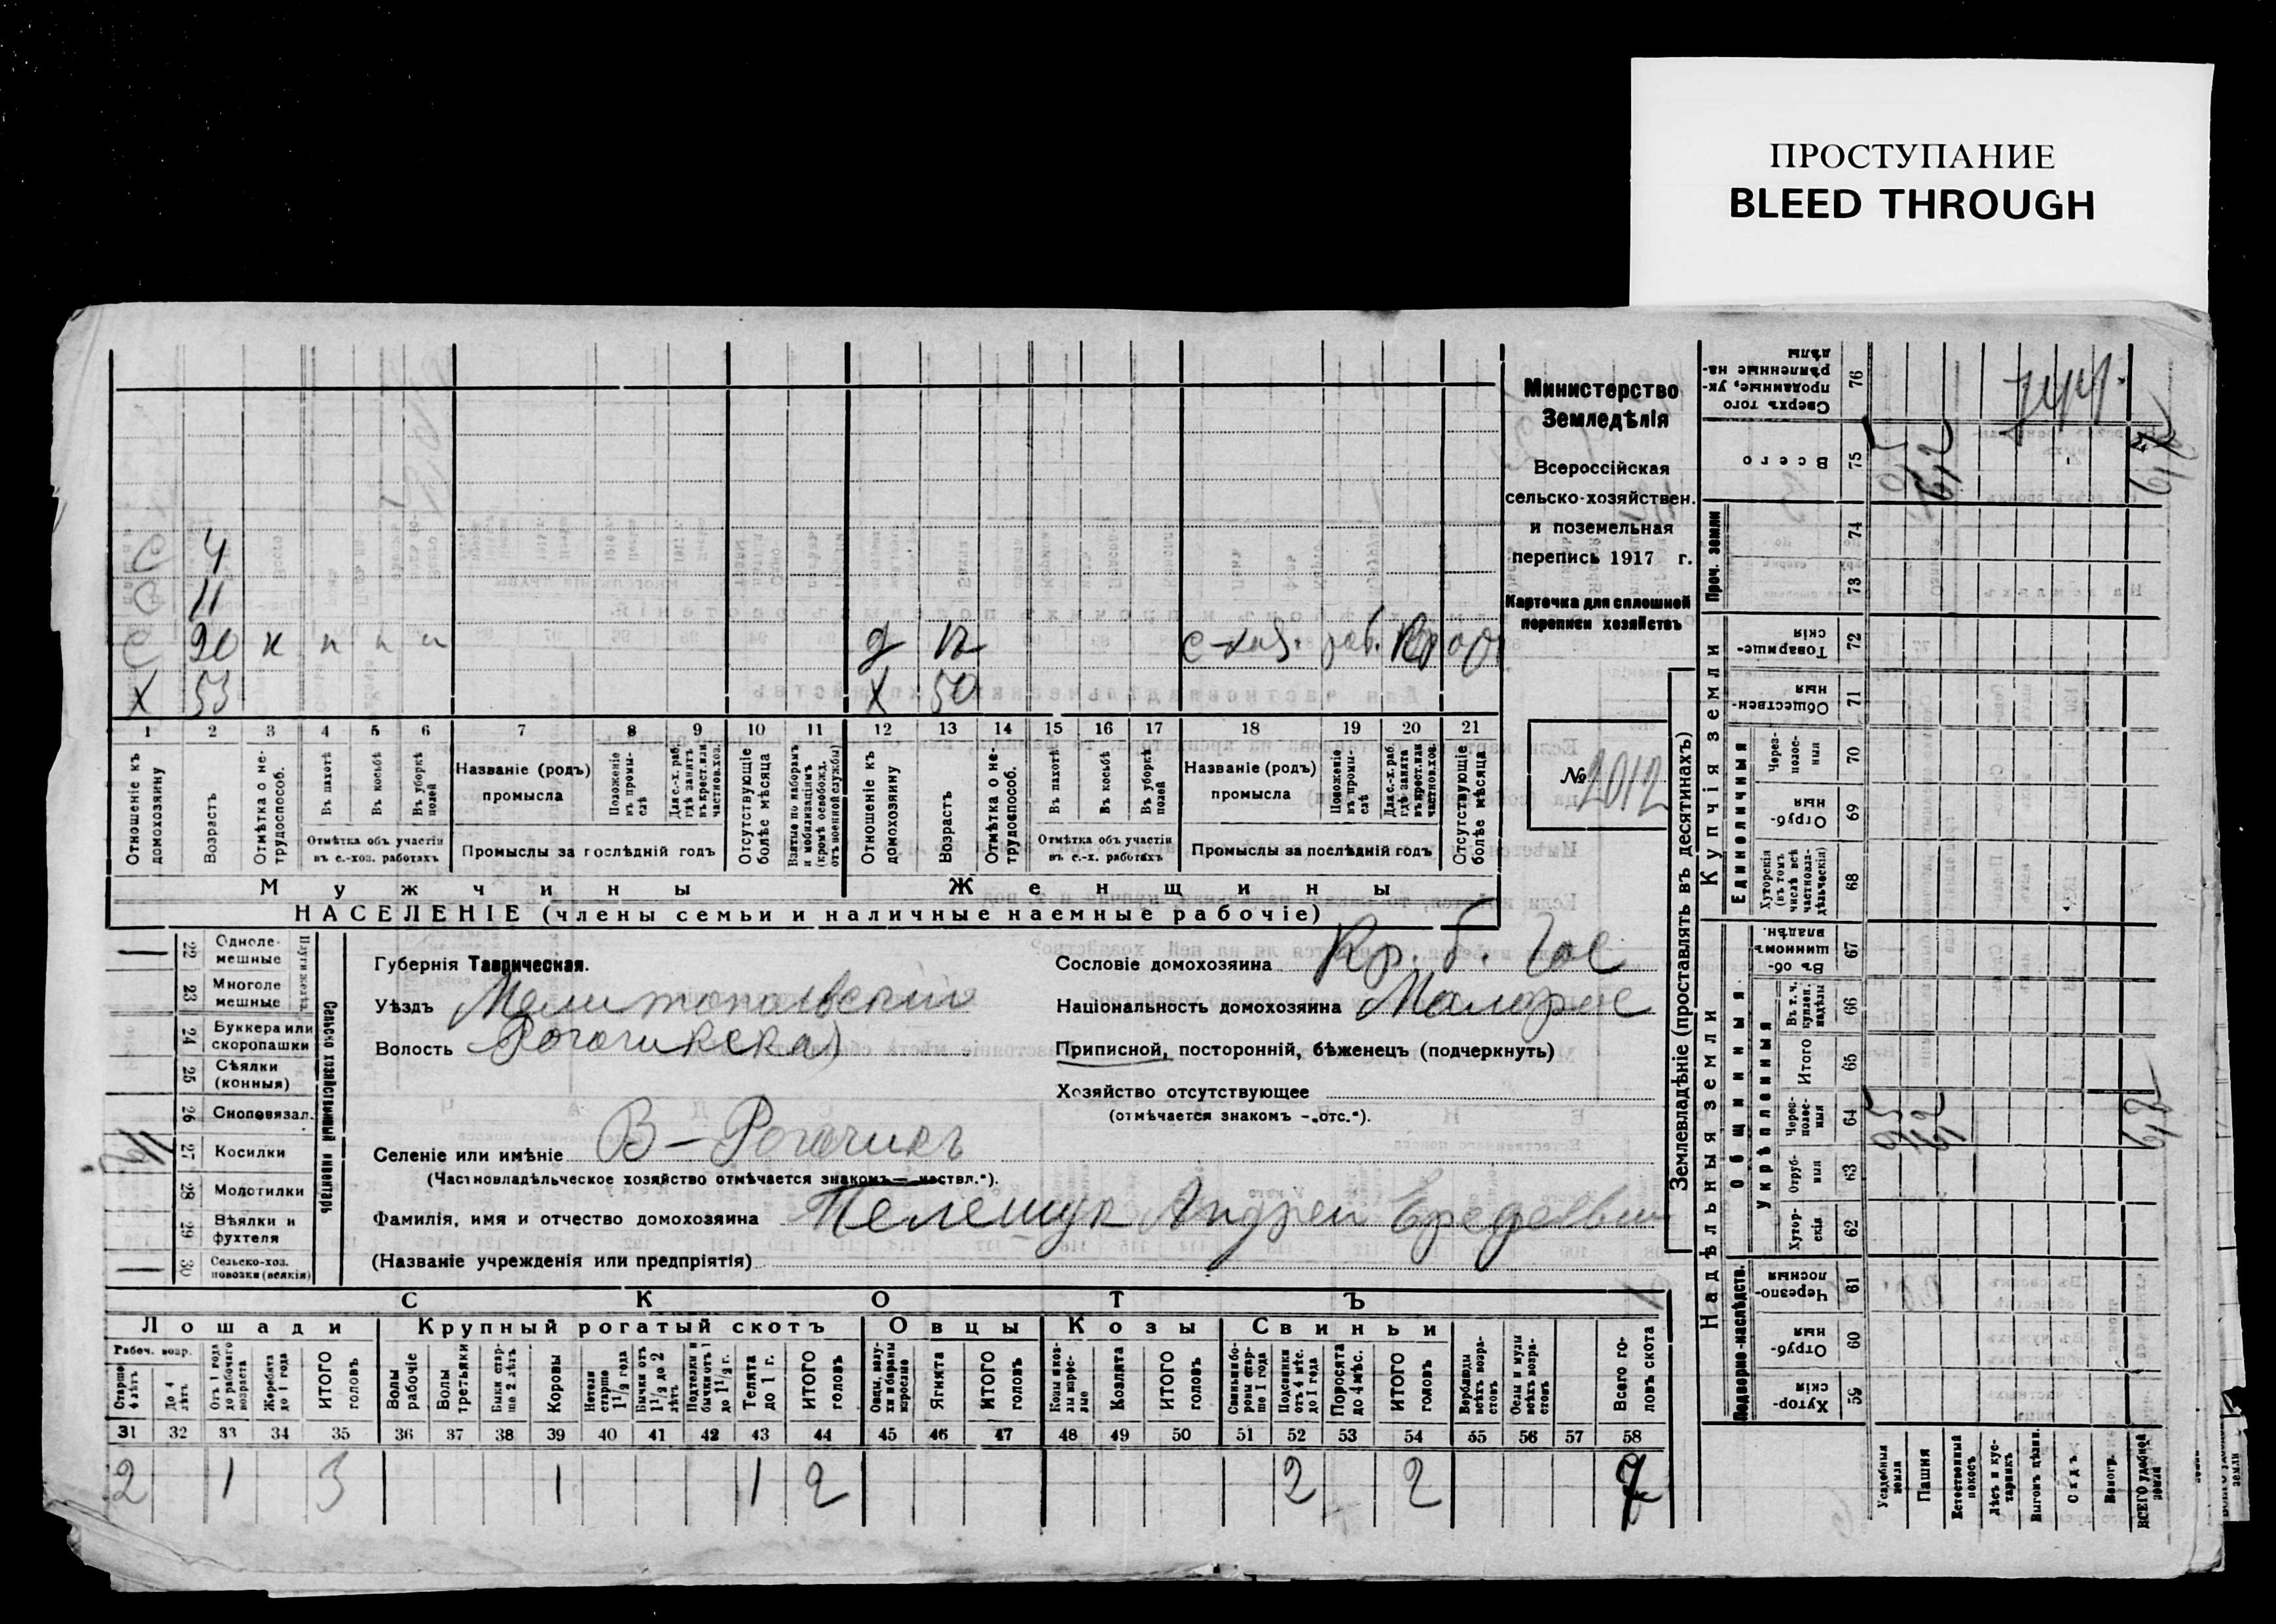 ПРОСТУПАНИЕ
BLEED THROUGH
Министерство
Земледѣлія
Всероссійская
сельско-хозяйствен.
и поземельная
перепись 1917 г.
Карточка для сплошной
переписи хозяйствъ
№ 2012
С 4
С 11
С 20 н п п п д 12 с-хоз. раб. Кр об
Х 53 Х 50
1 2 3 4 5 6 7 8 9 10 11 12 13 14 15 16 17 18 19 20 21
Отношеніе къ домохозяину
Возрастъ
Отмѣтка о не-трудоспособ.
Въ пахотѣ
Въ косьбѣ
Въ уборкѣ полей
Отмѣтка объ участіи въ с.-хоз. работахъ
Названіе (родъ) промысла
Положеніе въ промы-слѣ
Для с.-х. раб. гдѣ занятъ въ крест. или частнов. хоз.
Промыслы за послѣдній годъ
Отсутствующіе болѣе мѣсяца
Взятые по наборамъ и мобилизаціямъ (кромѣ освобожд. отъ военной службы)
Отношеніе къ домохозяину
Возрастъ
Отмѣтка о не-трудоспособ.
Въ пахотѣ
Въ косьбѣ
Въ уборкѣ полей
Отмѣтка объ участіи въ с.-х. работахъ
Названіе (родъ) промысла
Положеніе въ промы-слѣ
Для с.-х. раб. гдѣ занята въ крест. или частнов. хоз.
Промыслы за послѣдній годъ
Отсутствующіе болѣе мѣсяца
Мужчины Женщины
НАСЕЛЕНІЕ (члены семьи и наличные наемные рабочіе)
Сельско хозяйственный инвентарь
22 Одноле-мешные
23 Многоле мешные
24 Буккера или скоропашки
25 Сѣялки (конныя)
26 Сноповязал.
27 Косилки
28 Молотилки
29 Вѣялки и фухтеля
30 Сельско-хоз. повозки (всякія)
Губернія Таврическая.
Уѣздъ Мелитопольскій
Волость Рогачикская
Селеніе или имѣніе В-Рогачикъ
(Частновладѣльческое хозяйство отмѣчается знакомъ — частвл.").
Фамилія, имя и отчество домохозяина Телешук Андрей
(Названіе учрежденія или предпріятія)
Сословіе домохозяина Кр. б. Гос
Національность домохозяина Малорос
Приписной, посторонній, бѣженецъ (подчеркнуть)
Хозяйство отсутствующее
(отмѣчается знакомъ - „отс.").
СКОТЪ
Лошади Крупный рогатый скотъ Овцы Козы Свиньи
Рабоч. возр.
Старше 4 лѣтъ
До 4 лѣтъ
Отъ 1 года до рабочаго возраста
Жеребята до 1 года
ИТОГО головъ
Волы рабочіе
Волы третьяки
Быки стар-ше 2 лѣтъ
Коровы
Нетели старше 1 1/2 года
Бычки отъ 1 1/2 до 2 лѣтъ
Подтелки и бычки отъ 1 до 1 1/2 г.
Телята до 1 г.
ИТОГО головъ
Овцы, валу-хи и бараны взрослые
Ягнята
ИТОГО головъ
Козы и коз-лы взрос-лые
Козлята
ИТОГО головъ
Свиньи и бо-ровы стар-ше 1 года
Подсвинки отъ 4 мѣс. до 1 года
Поросята до 4 мѣс.
ИТОГО головъ
Верблюды всѣхъ возра-стовъ
Ослы и мулы всѣхъ возра-стовъ
Всего го-ловъ скота
31 32 33 34 35 36 37 38 39 40 41 42 43 44 45 46 47 48 49 50 51 52 53 54 55 56 57 58
2 1 3 1 1 2 2 2 7
Землевладѣніе (проставлять въ десятинахъ)
Купчія земли
Надѣльныя земли
Проч. земли
Единоличныя
Общинныя
Укрѣпленныя
Подворно-наслѣдств.
76 Сверхъ того проданные, ук-рѣпленные на-дѣлы
75 Всего
74
73
72 Товарище-скія
71 Обществен-ныя
70 Через-полос-ныя
69 Отруб-ныя
68 Хуторскія (въ томъ числѣ всѣ частновла-дѣльческія)
67 Въ об-щинномъ владѣн.
66 Въ т. ч. куплен. надѣлы
65 Итого
64 Черес-полос-ныя
63 Отруб-ныя
62 Хутор-скія
61 Черезпо-лосныя
60 Отруб-ныя
59 Хутор-скія
Усадебныя земля
Пашня
Естественный покосъ
Лѣсъ и кус-тарникъ
Выгонъ цѣлин.
Садъ
Виногр.
ВСЕГО удобной земли